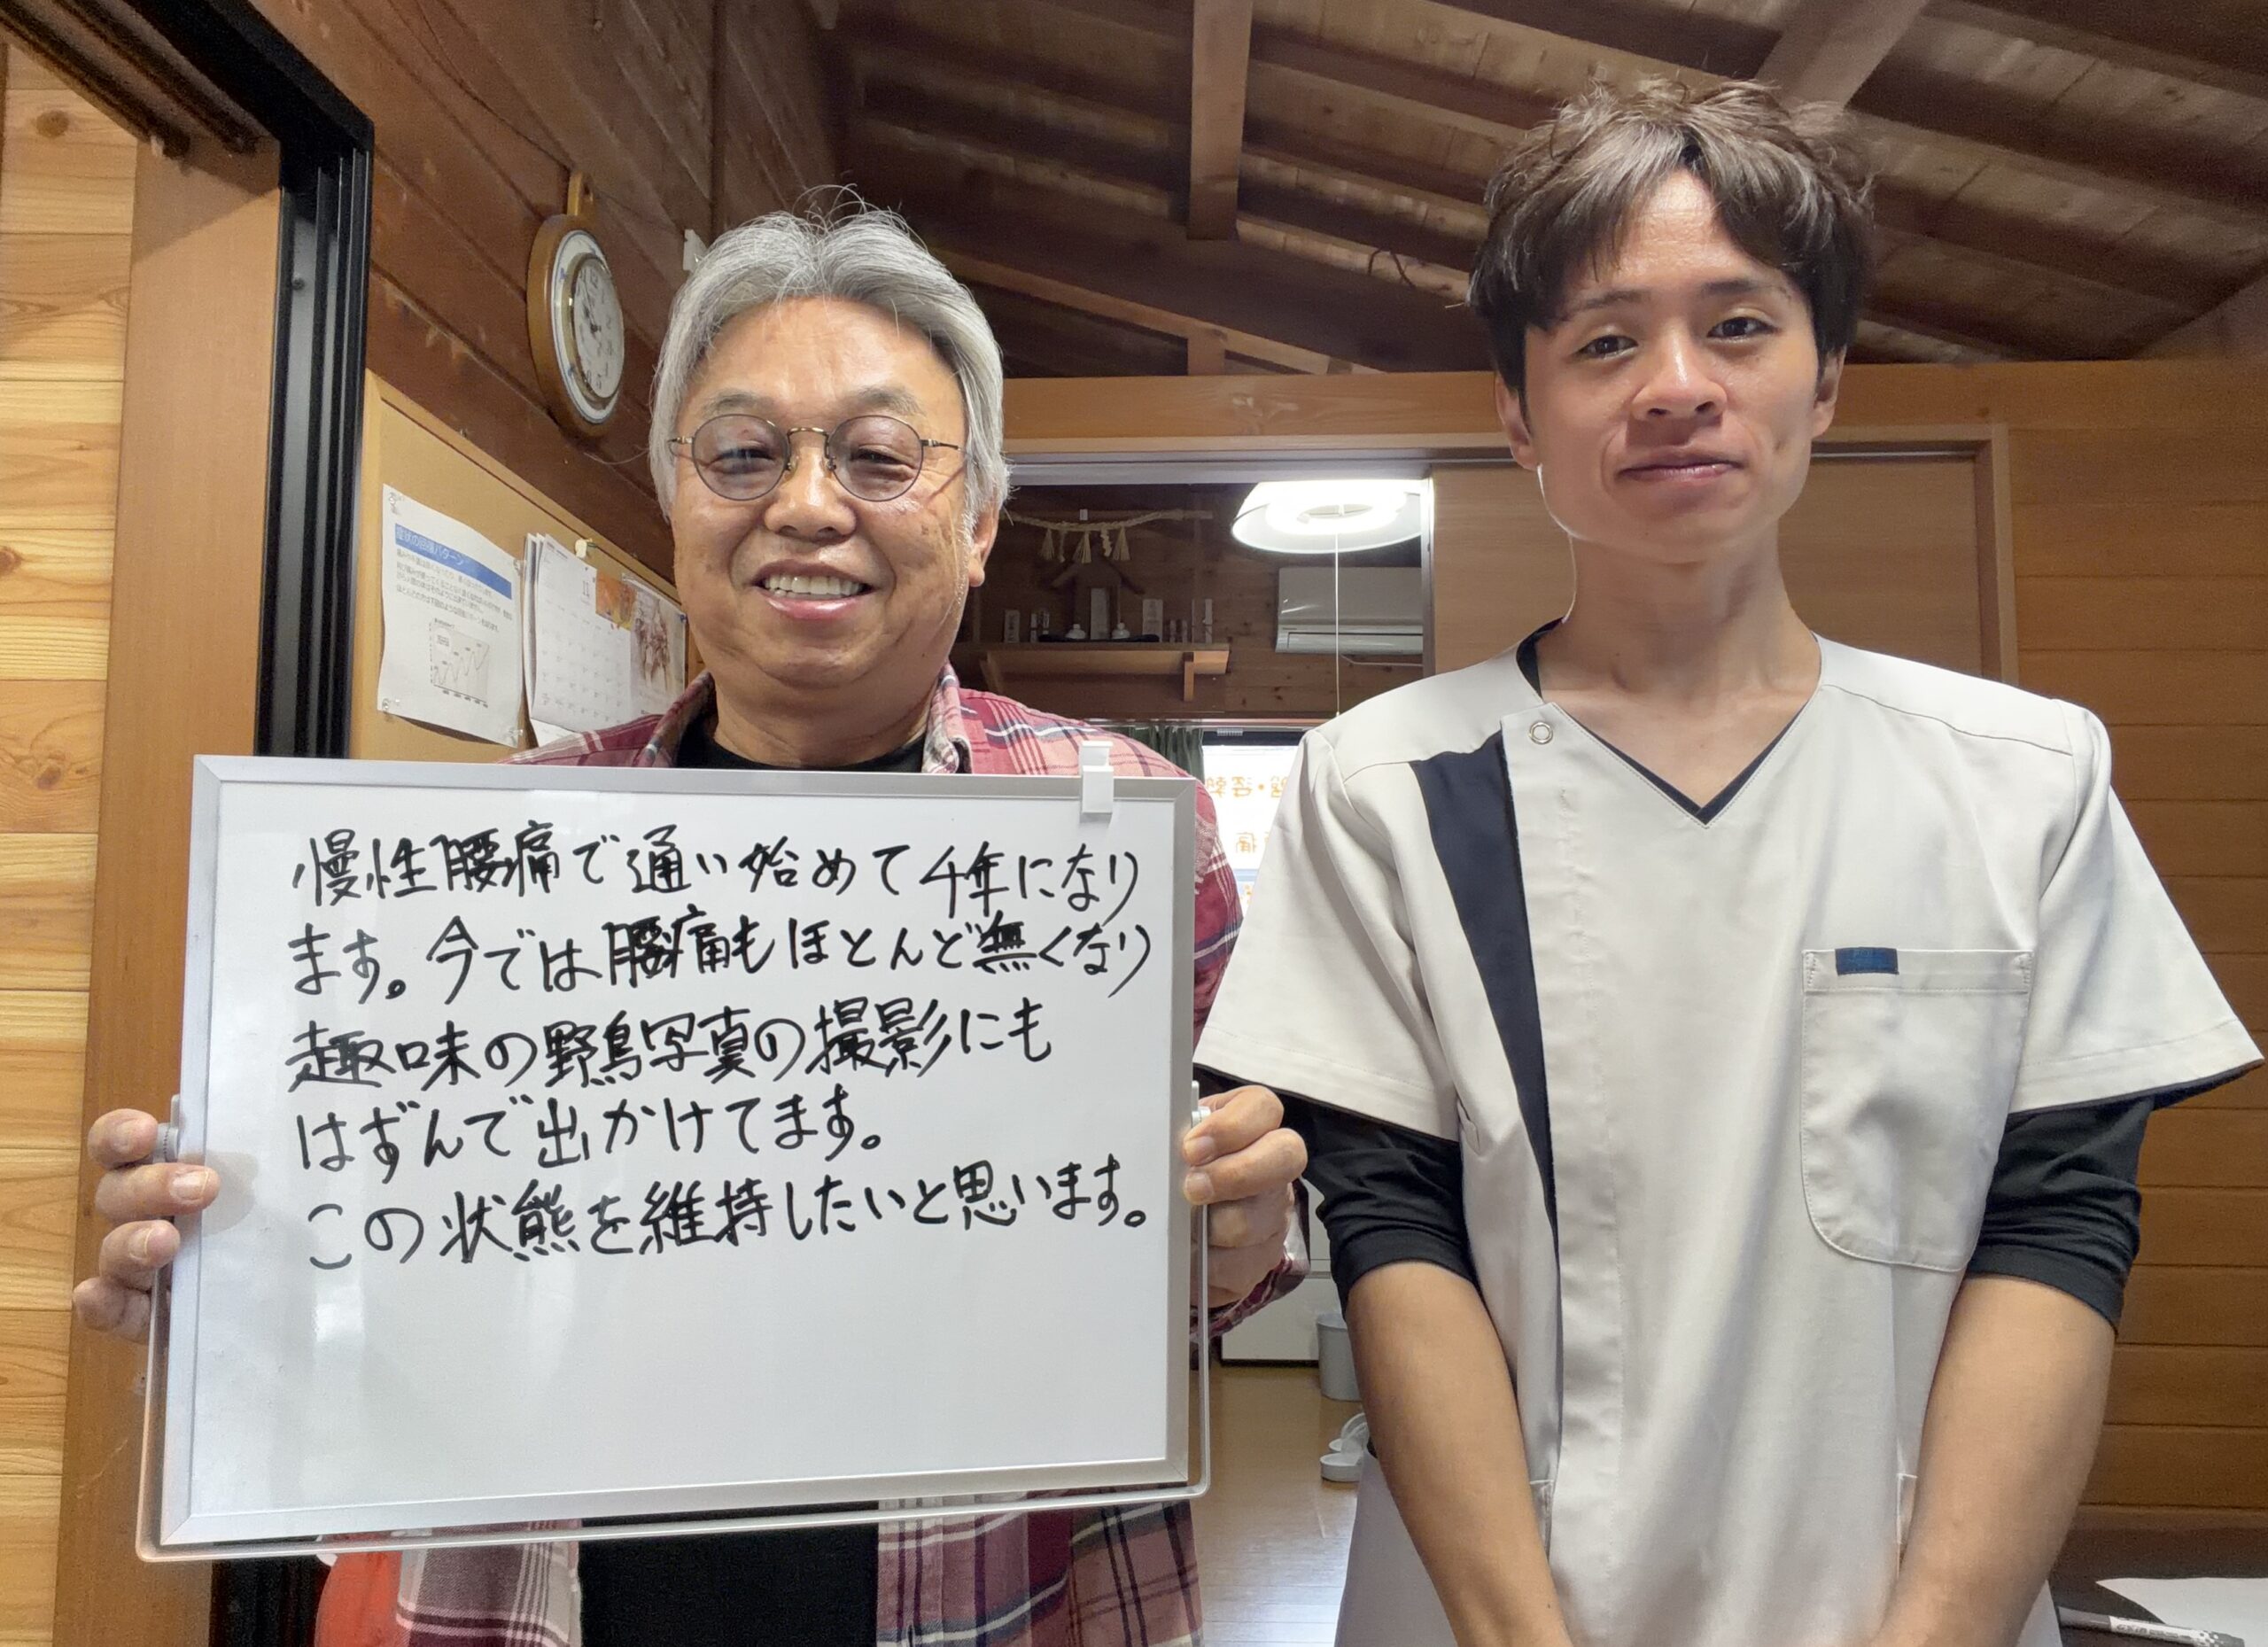 慢性腰痛で通い始めて4年になり
ます。今では腰痛もほとんど無くなり
趣味の野鳥写真の撮影にも
はずんで出かけてます。
この状態を維持したいと思います。
症状の回復パターン
11